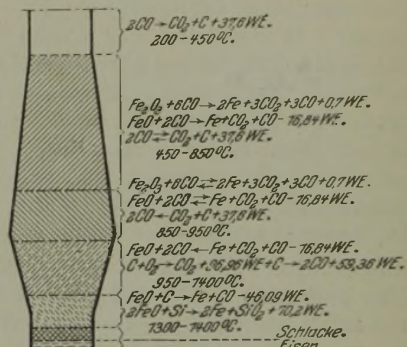 2CO→CO₂+C+37,6 WE.
200–450°C.
Fe₂O₃+6CO→2Fe+3CO₂+3CO+0,7 WE.
FeO+2CO→Fe+CO₂+CO–16,84 WE.
2CO⇄CO₂+C+37,6 WE.
450–850°C.
Fe₂O₃+6CO⇄2Fe+3CO₂+3CO+0,7 WE.
FeO+2CO⇄Fe+CO₂+CO–16,84 WE.
2CO←CO₂+C+37,6 WE.
850–950°C.
FeO+2CO←Fe+CO₂+CO–16,84 WE.
C+O₂→CO₂+96,96 WE+C→2CO+59,36 WE.
950–1400°C.
FeO+C→Fe+CO–46,09 WE.
2FeO+Si→2Fe+SiO₂+70,2 WE.
1300–1400°C.
Schlacke.
Eisen.